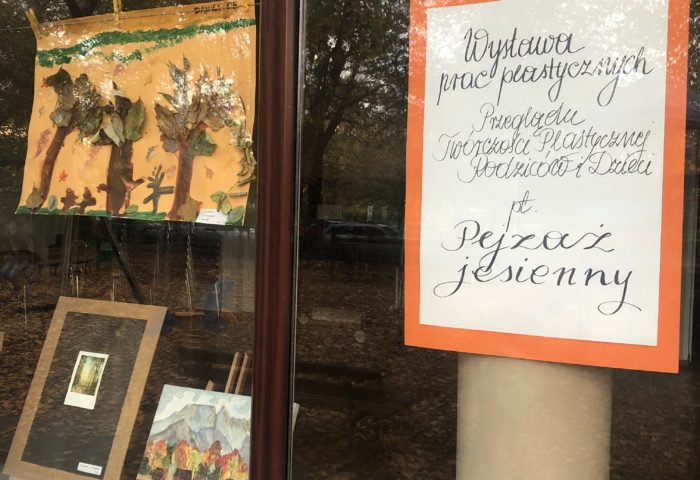 Wystawa
prac plastycznych
Przeglądu
Twórczości Plastycznej
Rodziców i Dzieci
pt.
Pejzaż
jesienny